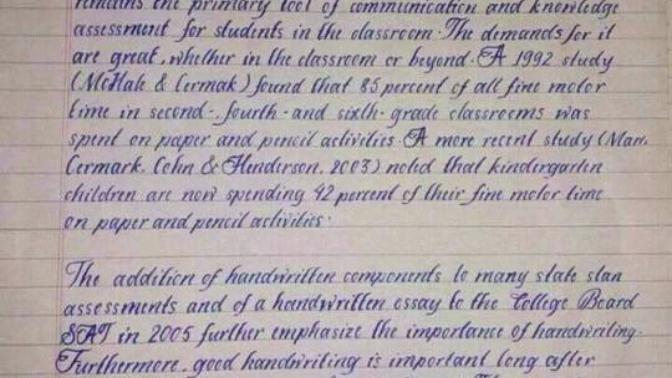 remains the primary tool of communication and knowledge
assessment for students in the classroom. The demands for it
are great, whether in the classroom or beyond. A 1992 study
(McHale & Cermak) found that 85 percent of all fine motor
time in second-, fourth- and sixth- grade classrooms was
spent on paper and pencil activities. A more recent study (Marr,
Cermark, Cohn & Henderson, 2003) noted that kindergarten
children are now spending 42 percent of their fine motor time
on paper and pencil activities.
The addition of handwritten components to many state stan
assessments and of a handwritten essay to the College Board
SAT in 2005 further emphasize the importance of handwriting.
Furthermore, good handwriting is important long after